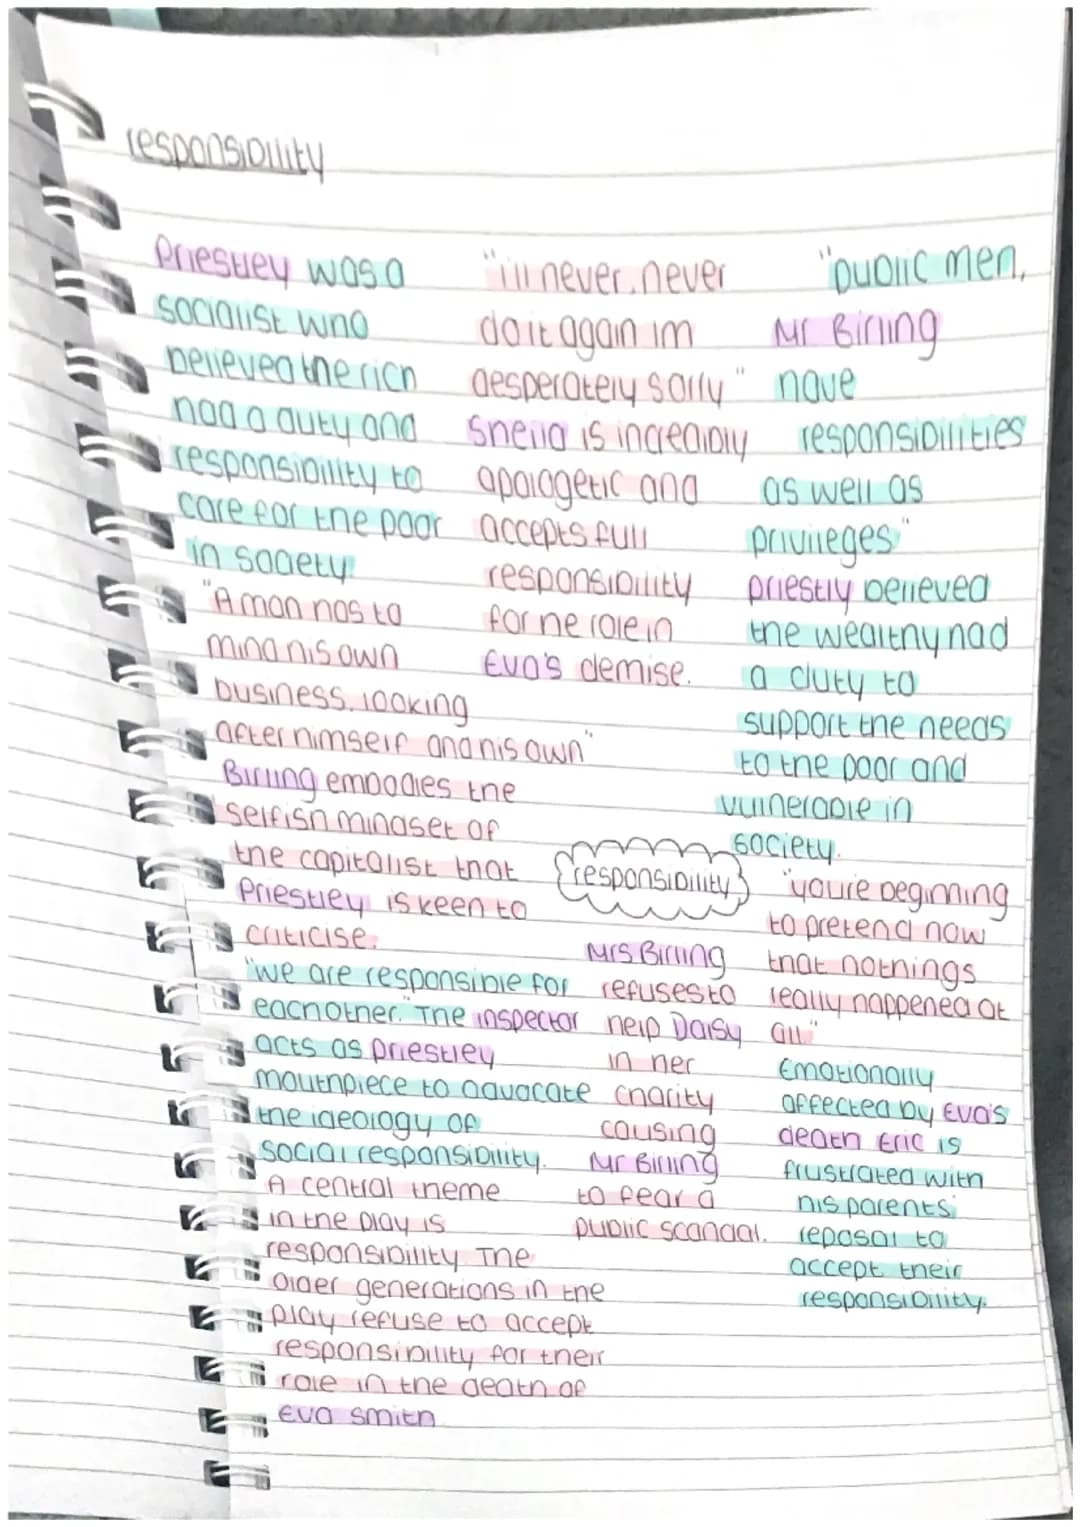 responsibility
Priestley was a
socialist who
believed the rich
had a duty and
responsibility to
care for the poor
in society.
"A man has to
mind his own
business, looking
after himself and his own"
Birling embodies the
selfish mindset of
the capitalist that
Priestley is keen to
criticise.
"we are responsible for
eachother." The inspector
acts as priestley
mouthpiece to advocate
the ideology of
social responsibility.
A central theme
in the play is
responsibility The
older generations in the
play refuse to accept
responsibility for their
role in the death of
Eva smith
"ill never, never
do it again im
desperately sorry"
Sheila is incredibly
apologetic and
accepts full
responsibility
for he role in
Eva's demise.
responsibility
Mrs Birling
refuses to
help Daisy
in her
charity
causing
Mr Birling
to fear a
public scandal.
"public men,
Mr Birling
have
responsibilities
as well as
privileges"
priestly believed
the wealthy had
a duty to
support the needs
to the poor and
vulnerable in
society.
"youre beginning
to pretend now
that nothings
really happened at
all"
Emotionally
affected by Eva's
death Eric is
frustrated with
his parents
reposal to
accept their
responsibility.